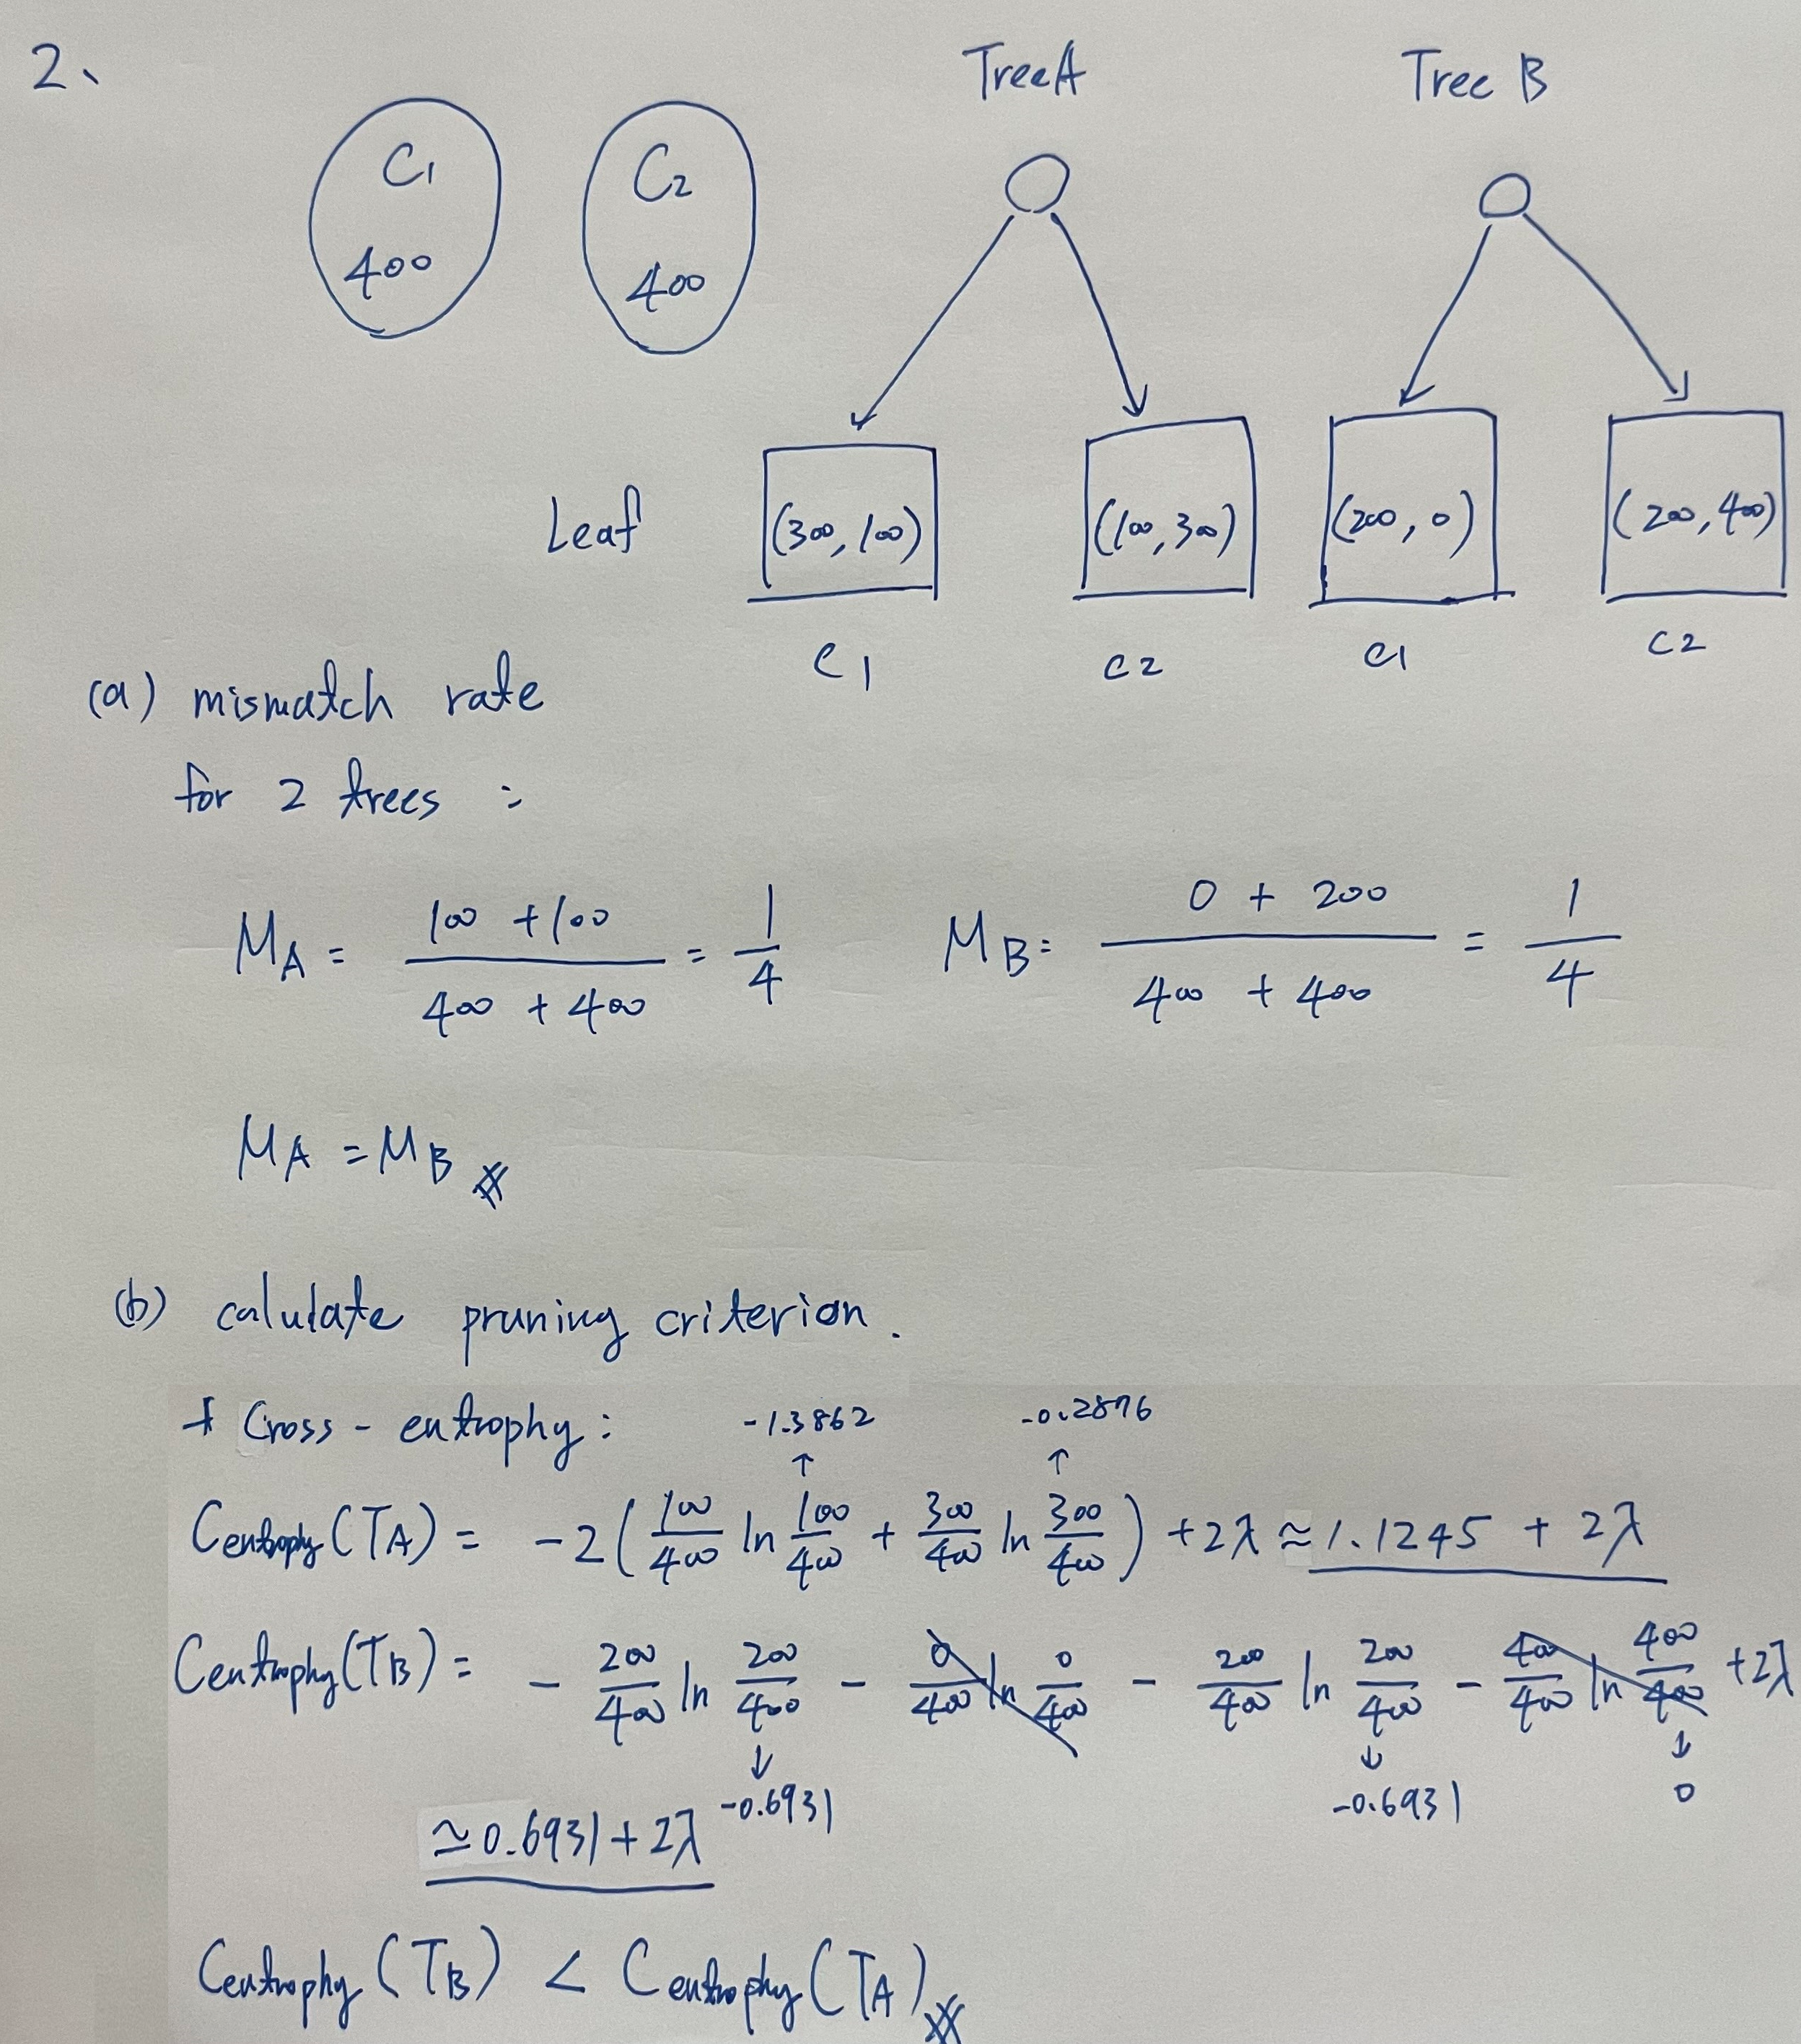 2、
Tree A Tree B
C1 C2
400 400
Leaf (300, 100) (100, 300) (200, 0) (200, 400)
C1 C2 C1 C2
(a) mismatch rate
for 2 trees :
MA = (100 + 100) / (400 + 400) = 1/4 MB = (0 + 200) / (400 + 400) = 1/4
MA = MB
(b) calulate pruning criterion.
* Cross - entrophy : -1.3862 -0.2876
↑ ↑
Centrophy (TA) = -2 ( 100/400 ln 100/400 + 300/400 ln 300/400 ) + 2λ ≈ 1.1245 + 2λ
Centrophy (TB) = - 200/400 ln 200/400 - 0/400 ln 0/400 - 200/400 ln 200/400 - 400/400 ln 400/400 + 2λ
↓ ↓ ↓
-0.6931 -0.6931 0
≃ 0.6931 + 2λ
Centrophy (TB) < Centrophy (TA)